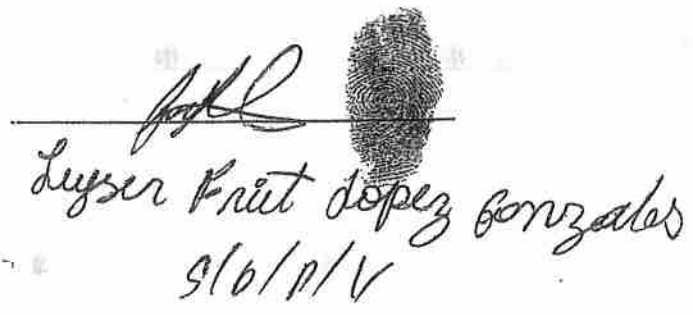 Luyser Frit Lopez Gonzales
S/D/P/V